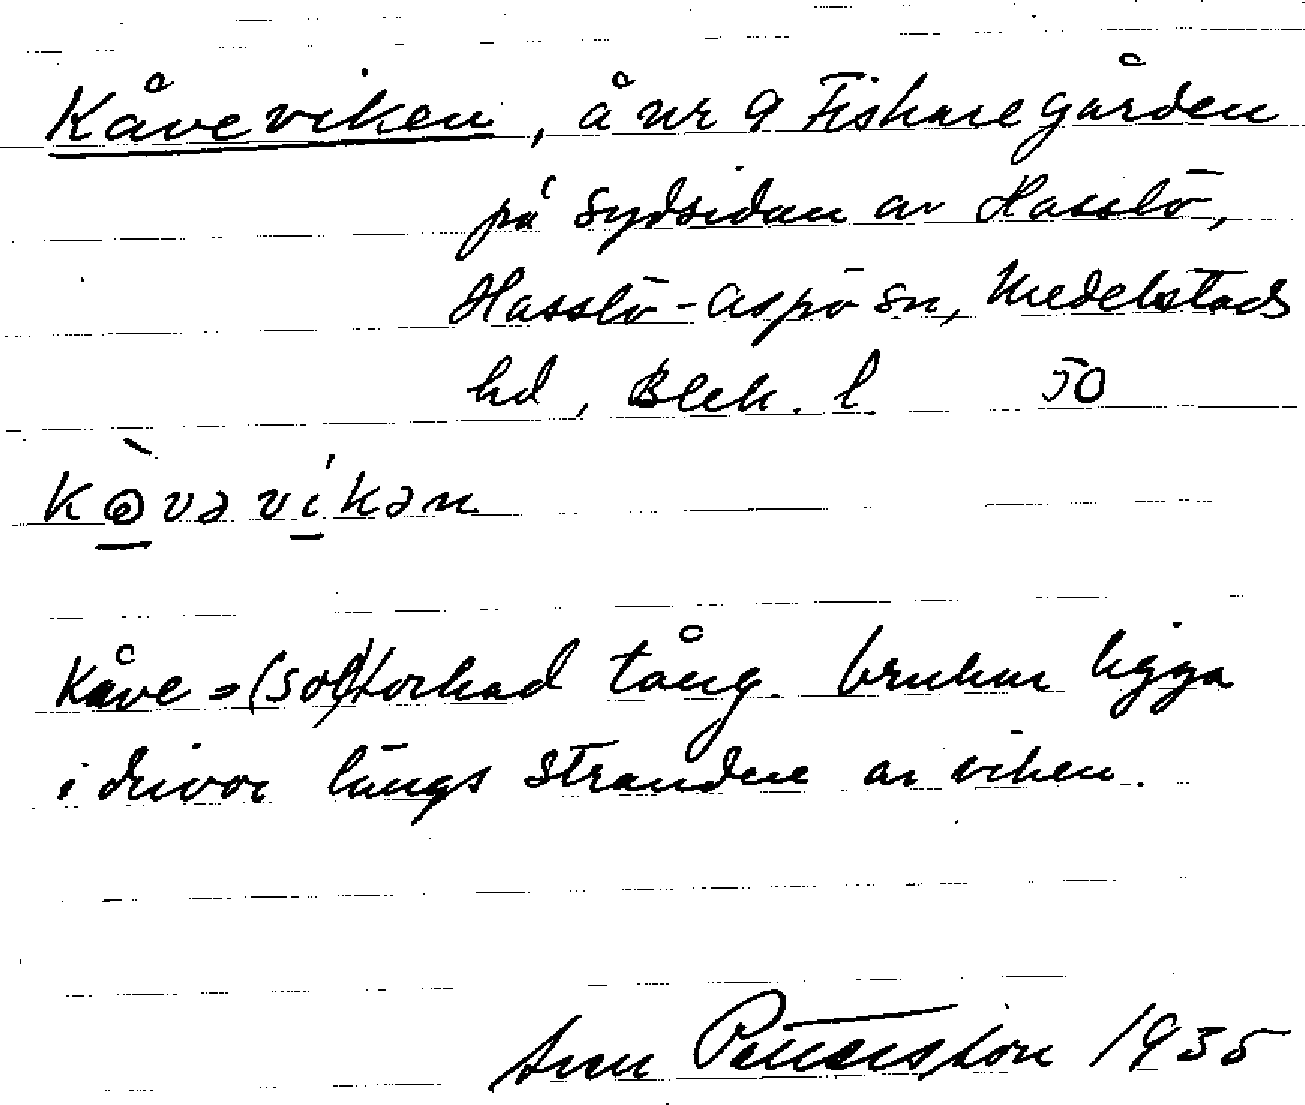 Kåveviken, å nr 9 Fiskaregården
på sydsidan av Hasslö,
Hasslö-Aspö sn, Medelstads
hd, Blek. l. 50
kò̲vəví̲kən
Kåve = (sol)torkad tång. brukar ligga
i drivor längs stranden av viken.
Sven Pettersson 1935